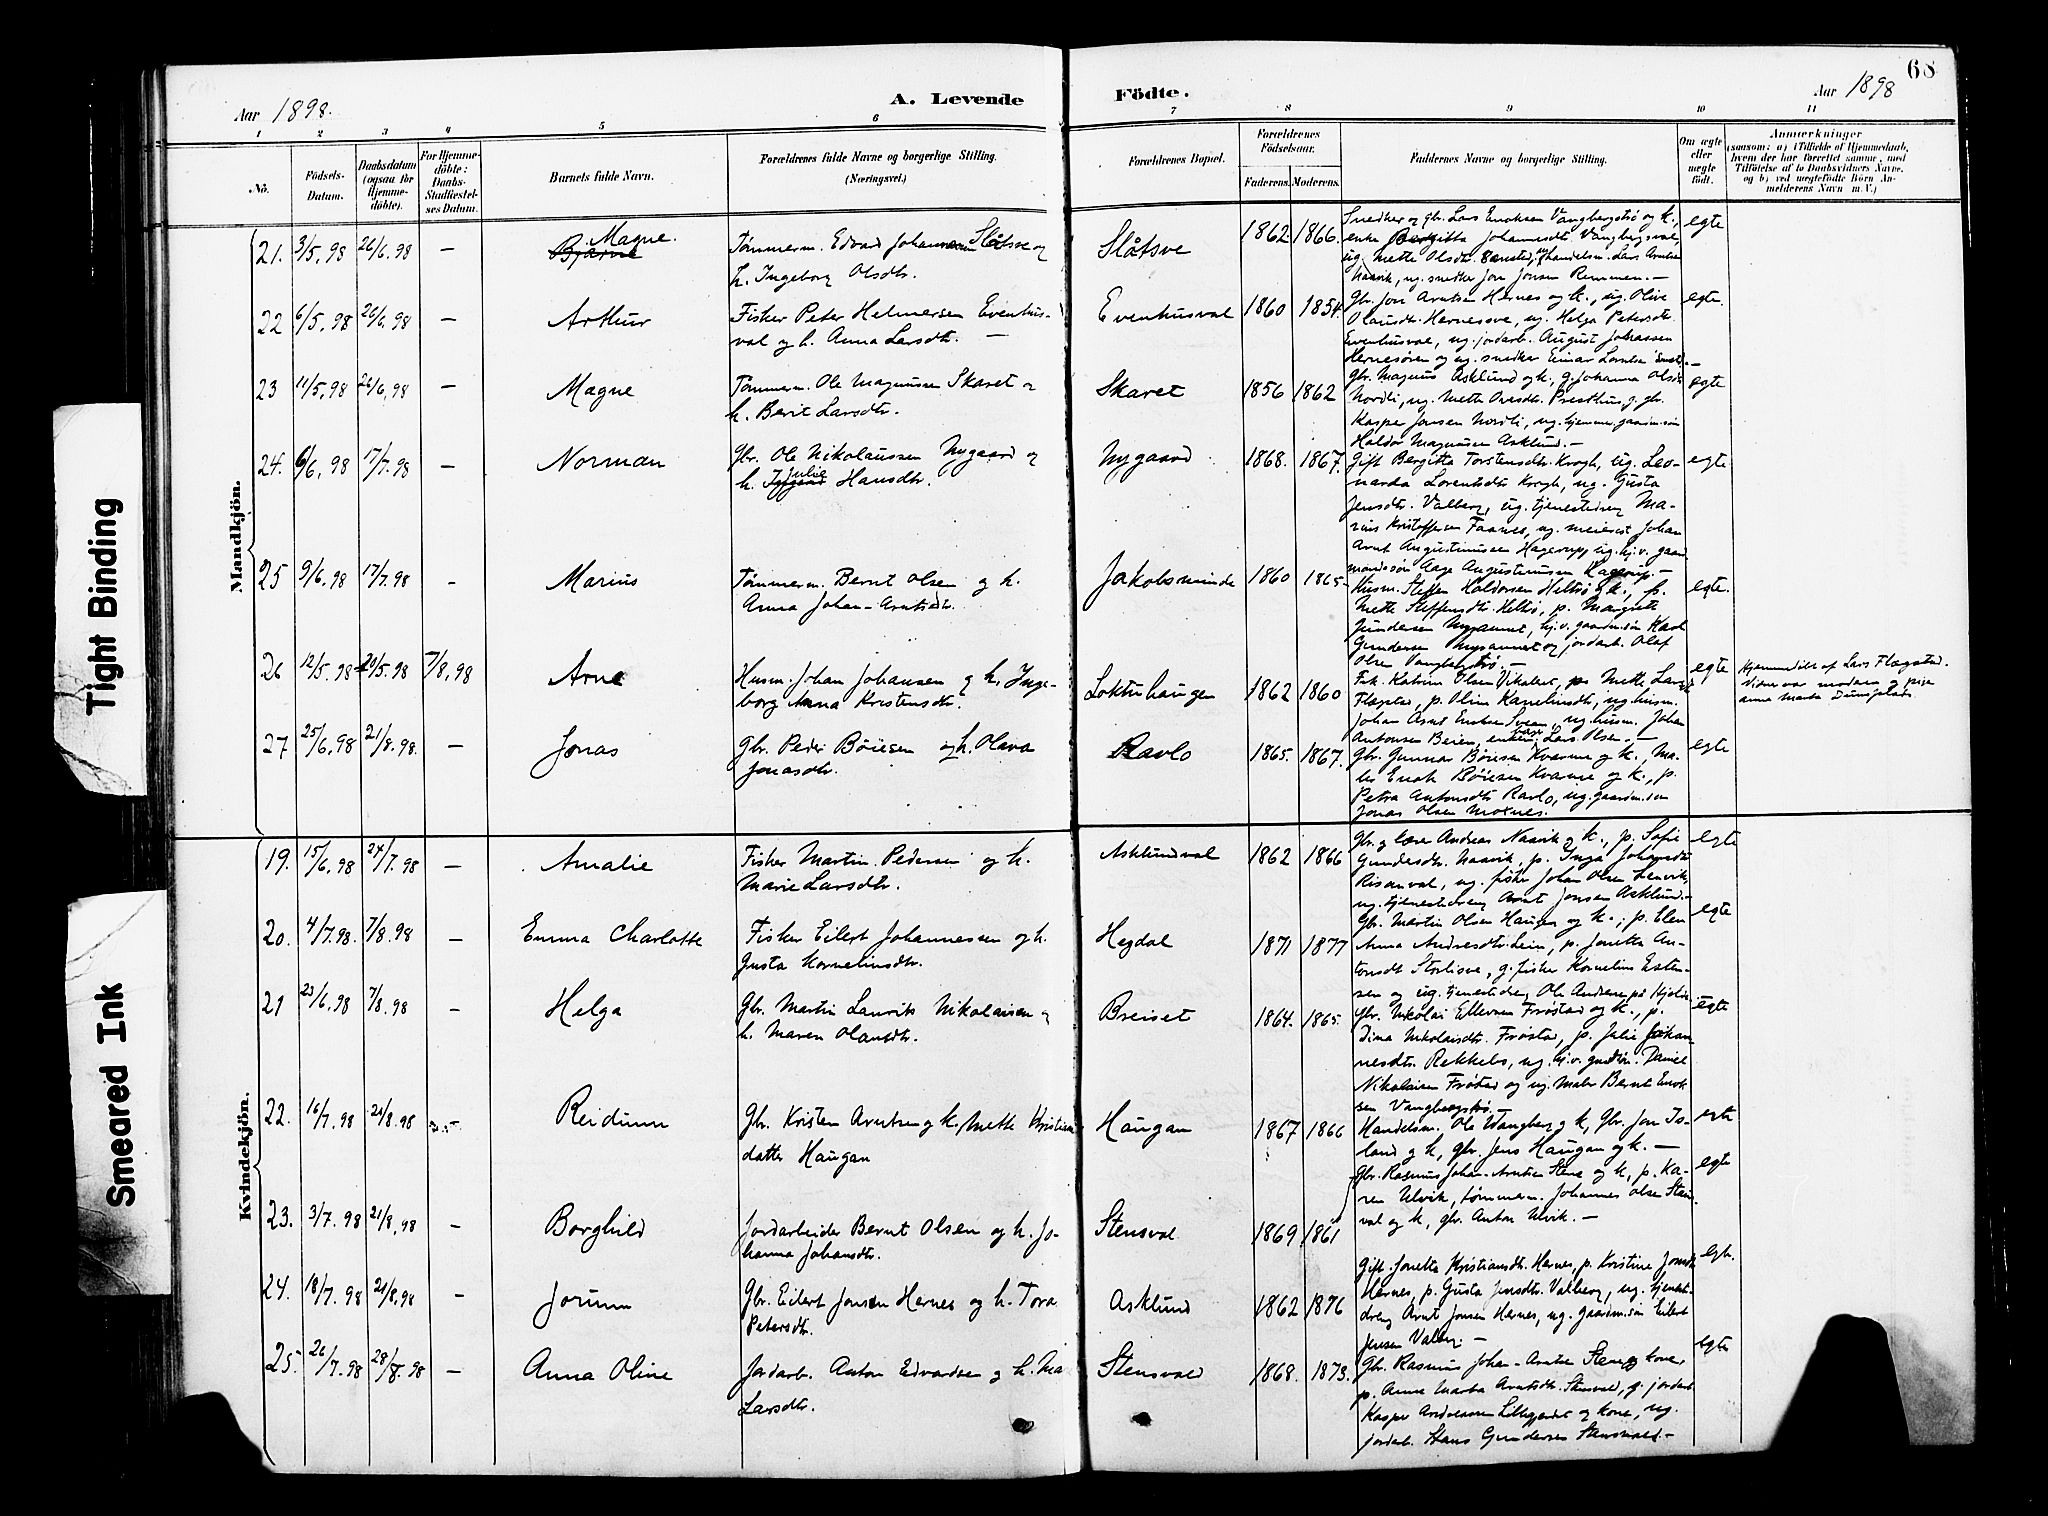 68
Aar 1898.
A. Levende Födte.
Aar 1898
1 2 3 4 5 6 7 8 9 10 11
No.
Födsels-Datum.
Daabsdatum (ogsaa for Hjemme-döbte).
For Hjemme-döbte: Daabs-Stadfæstel-ses Datum.
Barnets fulde Navn.
Forældrenes fulde Navne og borgerlige Stilling.
(Næringsvei.)
Forældrenes Bopæl.
Forældrenes Födselsaar.
Faderens. Moderens.
Faddernes Navne og borgerlige Stilling.
Om ægte eller uægte födt.
Anmærkninger
(saasom: a) i Tilfælde af Hjemmedaab, hvem der har forrettet samme, med Tilföielse af to Daabsvidners Navne. og b) ved uægtefödte Börn An-melderens Navn m. V.)
Mandkjön.
21. 3/5.98 26/6.98 — Bjarne Magne. Tømmerm. Edvard Johannesen Slåtsve og
h. Ingeborg Olsdtr.
Slåtsve 1862 1866.
Snedker og gbr. Lars Enoksen Vangbergstrø og k.,
enke Bergitta Johannesdtr. Vangbergsval,
ug. Mette Olsdtr. handelsm. Lars Arntsen
Naavik, ug. snedker Jon Jonsen Remmen. —
egte
22 6/5.98 26/6.98 — Arthur Fisker Peter Helmersen Evenhus-
val og h. Anna Larsdtr. —
Evenhusval 1860 1854.
Gbr. Jon Arntsen Hernes og k., ug. Olive
Olausdtr. Hernesøve, ug. Helga Petersdtr.
Evenhusval, ug. jordarb. August Johnsen
Hernesøren og ug. snedker Einar
egte.
23 11/5.98 26/6.98 — Magne Tømmerm. Ole Magnussen Skaret og
h. Berit Larsdtr.
Skaret 1856 1862
Gbr. Magnus Asklund og k., g. Johanna Olsdtr
Nordli, ug. Mette Presthus, g. gbr.
Kasper Jonsen Nordli, ug. hjemmev. gaardm.søn
Haldor Magnussen Asklund. —
egte
24. 6/6.98 17/7.98 — Norman Gbr. Ole Nikolaussen Nygaard og
h. Julie Hansdtr.
Nygaard 1868. 1867.
Gift Bergitta Torstensdtr. Krogh, ug. Leo-
narda Lorentsdtr Krogh, ug. Gusta
Jensdtr. Valberg, ug. tjenestedreng Ma-
rius Kristoffersen Faanes, ug. meierist Johan
Arnt Augustinusen Hagerup, ug. hj.v. gaard
mandssøn Aage Augustinusen Hagerup. —
egte
25 9/6.98 17/7.98 - Marius Tømmerm. Bernt Olsen og h.
Anna Johan-Arntsdtr.
Jakobsminde 1860 1865.
Husm. Steffen Haldorsen Heltrø og k., p.
Mette Steffensdtr. Heltrø, p. Margrete
Gundersen Mysamret, hj.v. gaardm.søn Karl
Gundersen og jordarb. Olaf
Olsen Vangbergstrø. —
egte.
26 12/5.98 20/5.98 7/8.98 Arne Husm. Johan Johansen og h. Inge-
borg Anna Kristensdtr.
Loktuhaugen 1862 1860
Frk. Katrine Olsen Vikaleret, p. Mette Larsdtr
Flægstad, p. Olina Kornelinsdtr., ug. husm.
Johan Arnt Svean, ug. husm. Johan
Antonsen Beien, enkem. Lars Olsen. —
egte
Hjemmedöbt af Lars Flægstad.
Vidner var moderen og pige
Anna Marta
27 25/6.98 21/8.98. — Jonas Gbr. Peder Böiesen og h. Olava
Jonasdtr.
Ravlo 1865. 1867.
Gbr. Gunnar Böiesen Kvarme og k., Ma-
ler Enok Böiesen Kvarme og k., p.
Petra Antonsdtr. Ravlo, ug. gaardm.søn
Jonas Olsen Moknes.
egte
Kvindekjön.
19. 15/6.98 24/7.98 — Amalie Fisker Martin Pedersen og h.
Marie Larsdtr.
Asklundval 1862 1866
Gbr. og lærer Andreas Naavik og k., p. Sofie
Gundersdtr. Naavik, p. Inga Johansdtr
Risanval, ug. fisker Johan Olsen Lenvik,
ug. tjenestedreng Arnt Jonsen Asklund. —
egte
20. 4/7.98. 7/8.98 — Emma Charlotte Fisker Eilert Johannessen og h.
Gusta Kornelinsdtr.
Hegdal 1871 1877
Gbr. Martin Olsen Haugen og k.; p. Elen
Anna Andreasdtr. Lein, p. Jonetta An-
tonsdtr Storlisve, g. fisker Kornelius Esten-
sen og ug. tjenestedreng Ole Andersen på
egte
21 23/6.98 7/8.98 — Helga Gbr. Martin Laurits Nikolaisen og
h. Maren Olausdtr.
Breiset 1864. 1865.
Gbr. Nikolai Ellevsen Frøstad og k., p.
Dina Nikolaisdtr. Frøstad, p. Julie Johan-
nesdtr. Rekkebo, ug. hj.v. Daniel
Nikolaisen Frøstad og ug. maler Bernt Enok-
sen Vangbergstrø. —
egte
22. 16/7.98 21/8.98 Reidunn Gbr. Kristen Arntsen og h. Mette Kristians
datter Haugan
Haugan 1867 1866
Handelsm. Ole Vangberg og k, Gbr. Jon Is-
land og k, gbr. Jens Haugan og k. —
egte
23. 3/7.98 21/8.98 — Borghild Jordarbeider Bernt Olsen og h. Jo-
hanna Johansdtr.
Stensval 1869. 1861
Gbr. Rasmus Johan-Arntsen Stene og k, p. Ka-
ren Ulvik, tømmerm. Johannes Olsen Sten-
val og k, gbr. Anton Ulvik. —
egte
24. 18/7.98 21/8.98 — Jorunn Gbr. Eilert Jonsen Hernes og h. Tora
Petersdtr.
Asklund 1862 1876
Gift Jonetta Kristiansdtr. Hernes, p. Kristine Jonsdtr
Hernes, p. Gusta Jensdtr. Valberg, ug. tjeneste-
dreng Arnt Jonsen Hernes, ug. gaardm.søn Eilert
Jensen Valberg. —
egte.
25. 26/7.98 28/8.98 — Anna Oline Jordarb. Anton Edvardsen og h.
Larsdtr.
Stensvald 1868. 1873.
Gbr. Rasmus Johan-Arntsen Stene og kone,
p. Anna Marta Arntsdtr. Stensvald, g. jordarb.
Kasper Andreassen Lillegjerdet og kone, ug.
jordarb. Hans Gundersen Stensvald. —
egte
Tight Binding
Smeared Ink